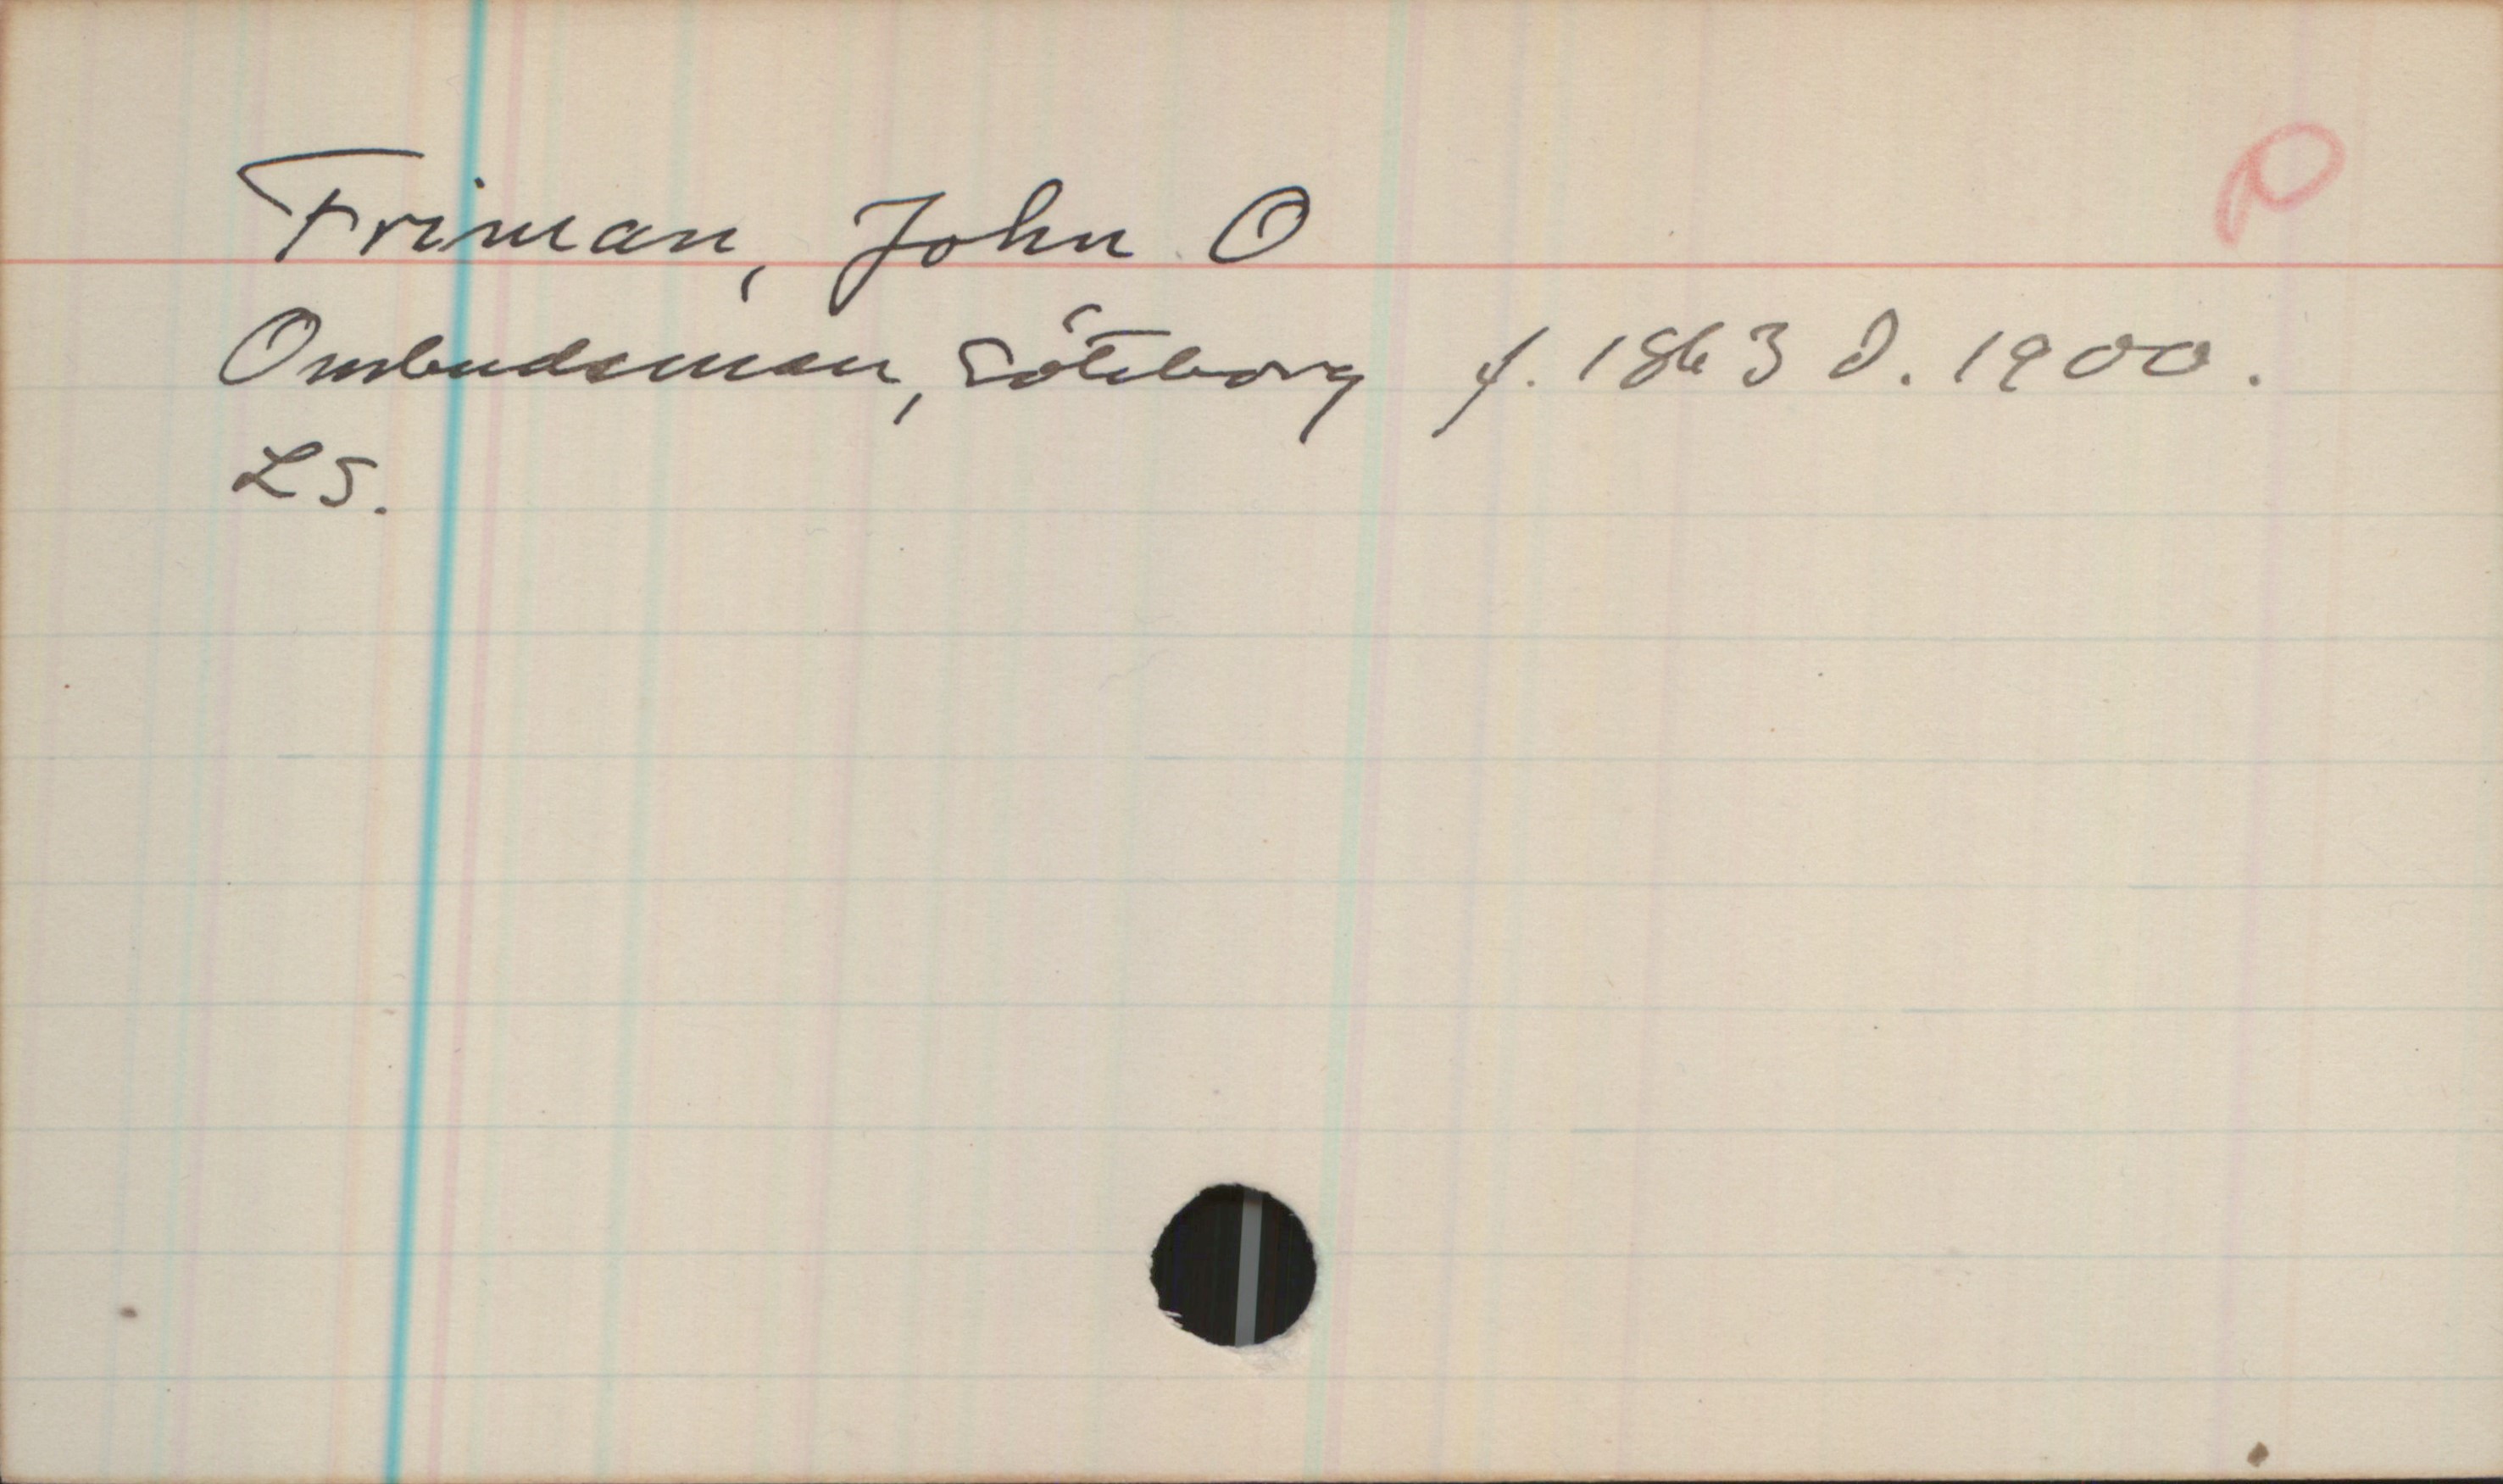 Friman, John O
Ombudsman, Göteborg f. 1863 d. 1900.
LS.